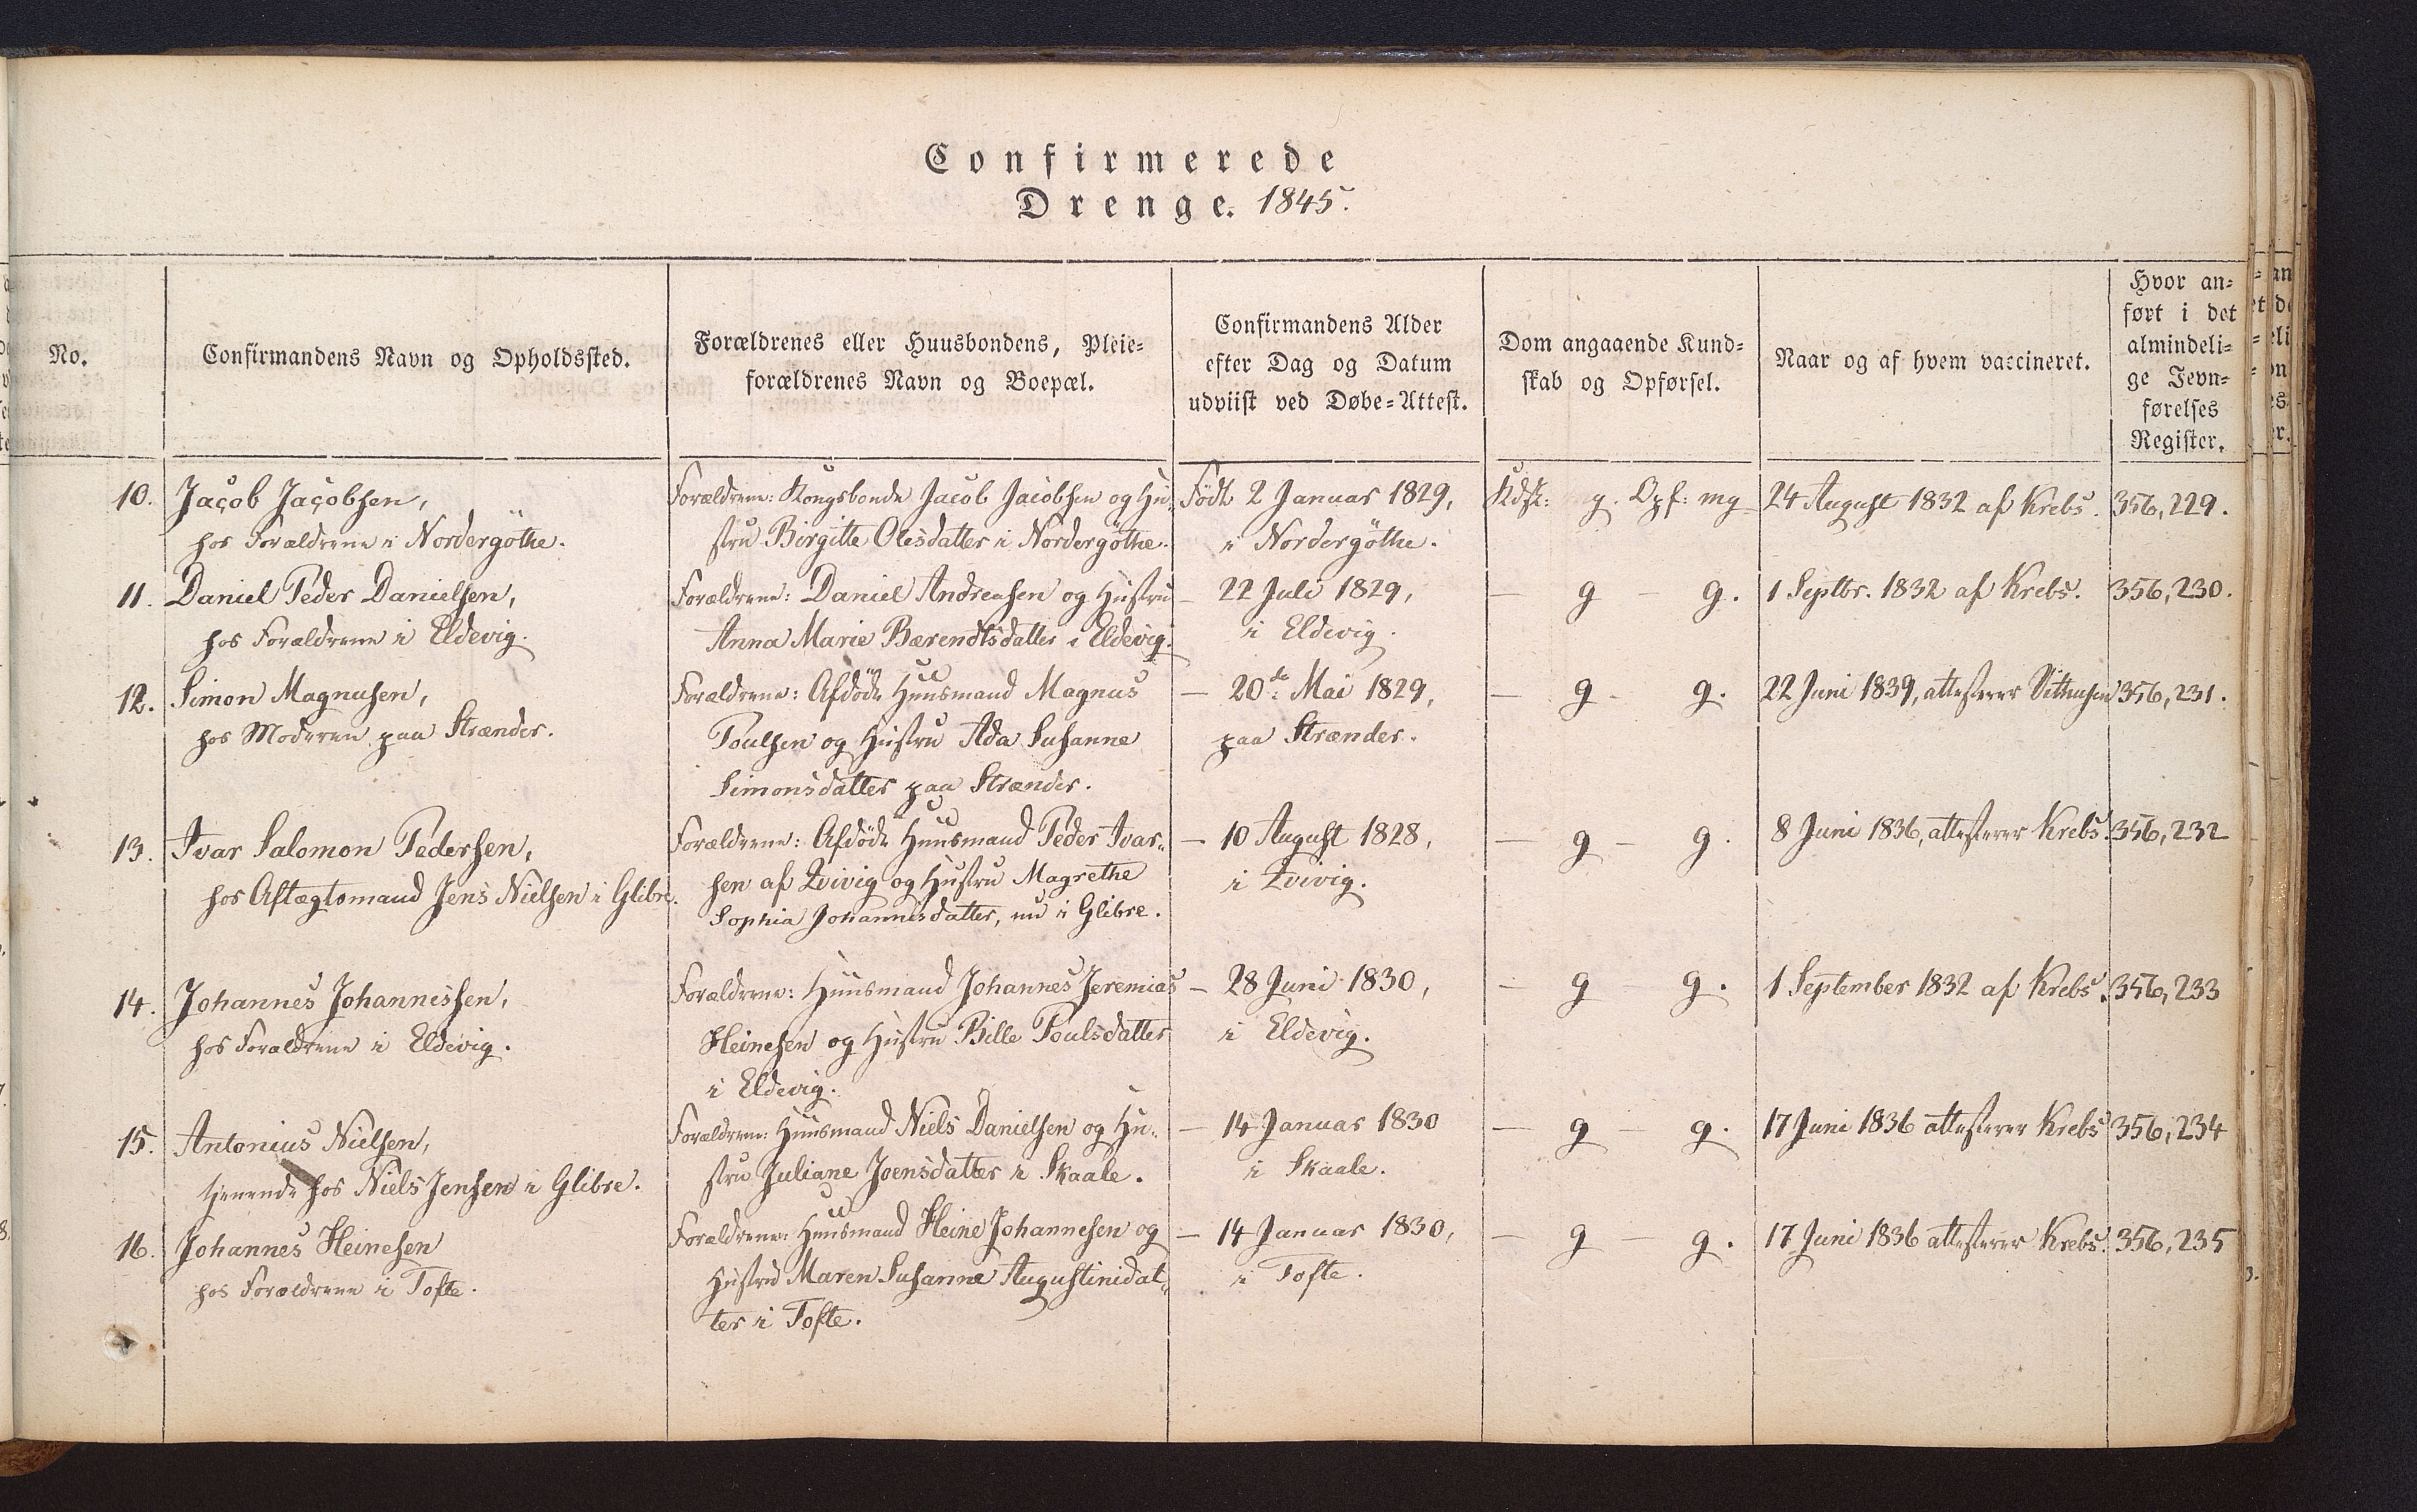 Confirmerede
Drenge. 1845.
No.
Confirmandens Navn og Opholdssted.
Forældrenes eller Huusbondens, Pleie-
forældrenes Navn og Boepæl.
Confirmandens Alder
efter Dag og Datum
udviist ved Døbe-Attest.
Dom angaaende Kund-
skab og Opførsel.
Naar og af hvem vaccineret.
Hvor an-
ført i det
almindeli-
ge Jevn-
førelses
Register.
10.
Jacob Jacobsen,
hos Forældrene i Nordergöthe.
Forældrene: Kongsbonde Jacob Jacobsen og Hu-
stru Birgitte Olesdatter i Nordergöthe.
Født 2 Januar 1829,
i Nordergöthe.
Kdsk: mg. Opf: mg
24 August 1832 af Krebs.
356,229.
11.
Daniel Peder Danielsen,
hos Forældrene i Eldevig.
Forældrene: Daniel Andreasen og Hustru
Anna Marie Bærendtsdatter i Eldevig.
— 22 Juli 1829,
i Eldevig.
— g — g.
1 Septbr. 1832 af Krebs.
356,230.
12.
Simon Magnusen,
hos Moderen paa Strænder.
Forældrene: Afdöde Huusmand Magnus
Poulsen og Hustru Ada Susanne
Simonsdatter paa Strænder.
— 20de Mai 1829,
paa Strænder.
— g - g.
22 Juni 1839, attesterer
356,231.
13.
Ivar Salomon Pedersen,
hos Aftægtsmand Jens Nielsen i Glibre.
Forældrene: Afdöde Huusmand Peder Ivar-
sen af Qvivig og Hustru Magrethe
Sophia Johannisdatter, nu i Glibre.
— 10 August 1828,
i Qvivig.
— g — g.
8 Juni 1836, attesterer Krebs.
356,232
14.
Johannes Johannissen,
hos Forældrene i Eldevig.
Forældrene: Huusmand Johannes Jeremias
Heinesen og Hustru Bille Poulsdatter
i Eldevig.
— 28 Juni 1830,
i Eldevig.
— g — g.
1 September 1832 af Krebs.
356,233
15.
Antonius Nielsen,
tjenende hos Niels Jensen i Glibre.
Forældrene: Huusmand Niels Danielsen og Hu-
stru Juliane Joensdatter i Skaale.
— 14 Januar 1830
i Skaale.
— g — g.
17 Juni 1836 attesterer Krebs
356,234
16.
Johannes Heinesen
hos Forældrene i Tofte.
Forældrene: Huusmand Heine Johannesen og
Hustru Maren Susanne Augustinidat-
ter i Tofte.
— 14 Januar 1830,
i Tofte.
— g — g.
17 Juni 1836 attesterer Krebs.
356,235